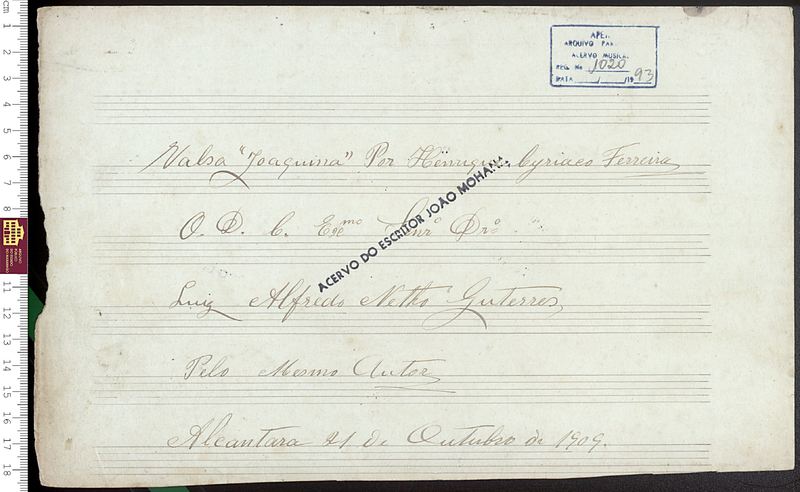 APEM
ARQUIVO PAR.
ACERVO MUSICAL
REG. No 1020
DATA / /19 93
Valsa "Joaquina" Por Henrique Cyriaco Ferreira
O. D. C. Exmo Senr Dro
ACERVO DO ESCRITOR JOÃO MOHANA
Luiz Alfredo Netto Guterres
Pelo Mesmo Autor
Alcantara 21 de Outubro de 1909.
cm 1 2 3 4 5 6 7 8 11 12 13 14 15 16 17 18